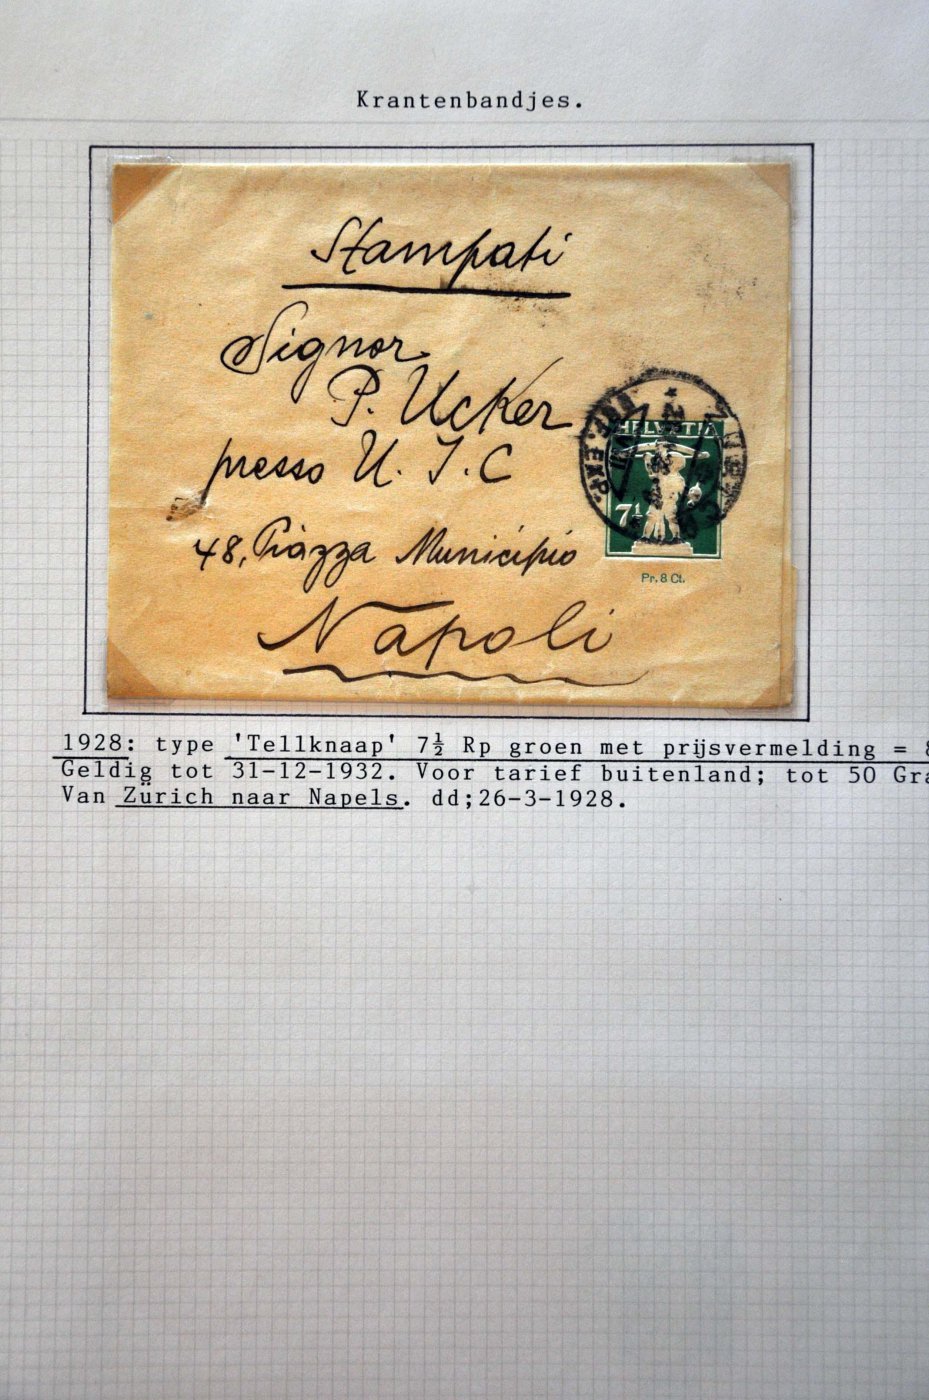 Krantenbandjes.
Stampati
Signor
P. Ucker
presso U. I. C
48, Piazza Municipio
Napoli
HELVETIA
7½
Pr. 8 Ct.
1928: type 'Tellknaap' 7½ Rp groen met prijsvermelding = 8
Geldig tot 31-12-1932. Voor tarief buitenland; tot 50 Gra
Van Zürich naar Napels. dd;26-3-1928.